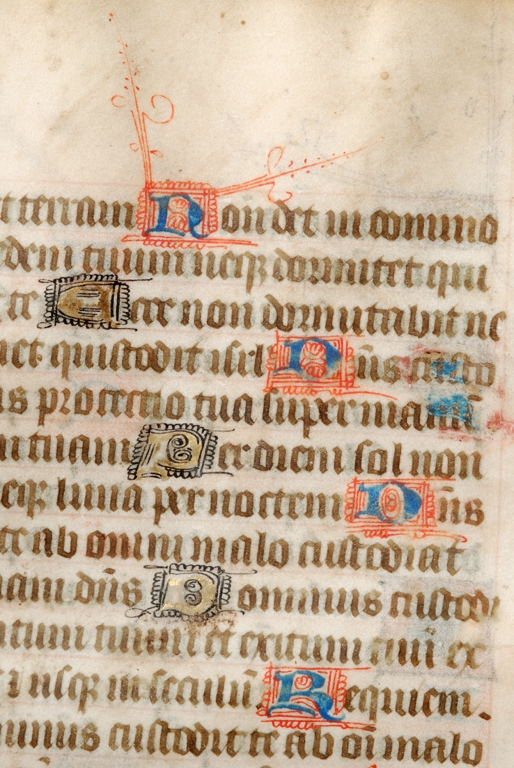 t terram Non det in commo
dem tuum neqꝫ dormitet qui
te Ecce non dormitabit ne
et qui custodit isrl Dn̄s custo
s protectio tua super manū
tuam Per diem sol non
eqꝫ luna per noctem Dn̄s
te ab omni malo custodiat
am dn̄s Dominus custodi
tum tuum et exitum tuū ex
usqꝫ in seculū Requiem.
minus custodit te ab oī malo